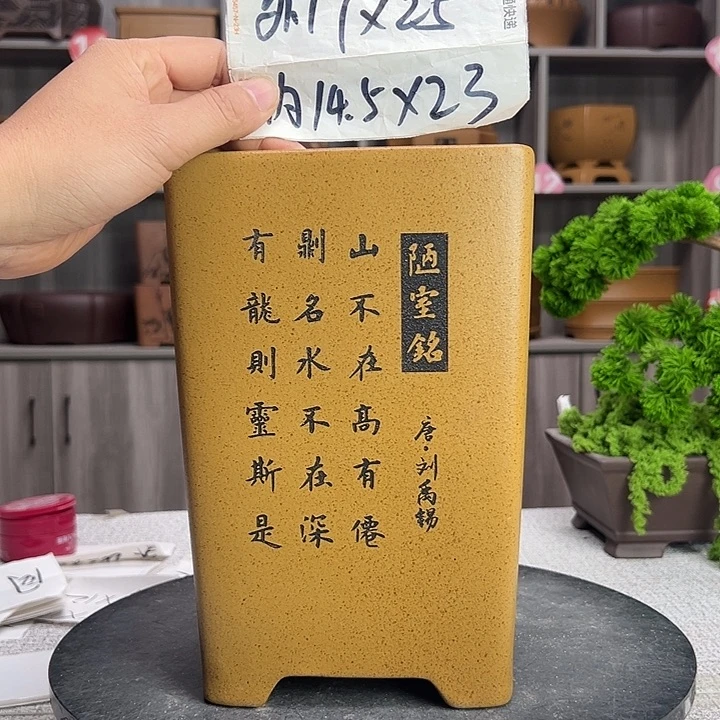 外17X25
内14.5X23
通快递
陋室銘
唐·刘禹錫
山不在髙有僊
則名水不在深
有龍則靈斯是